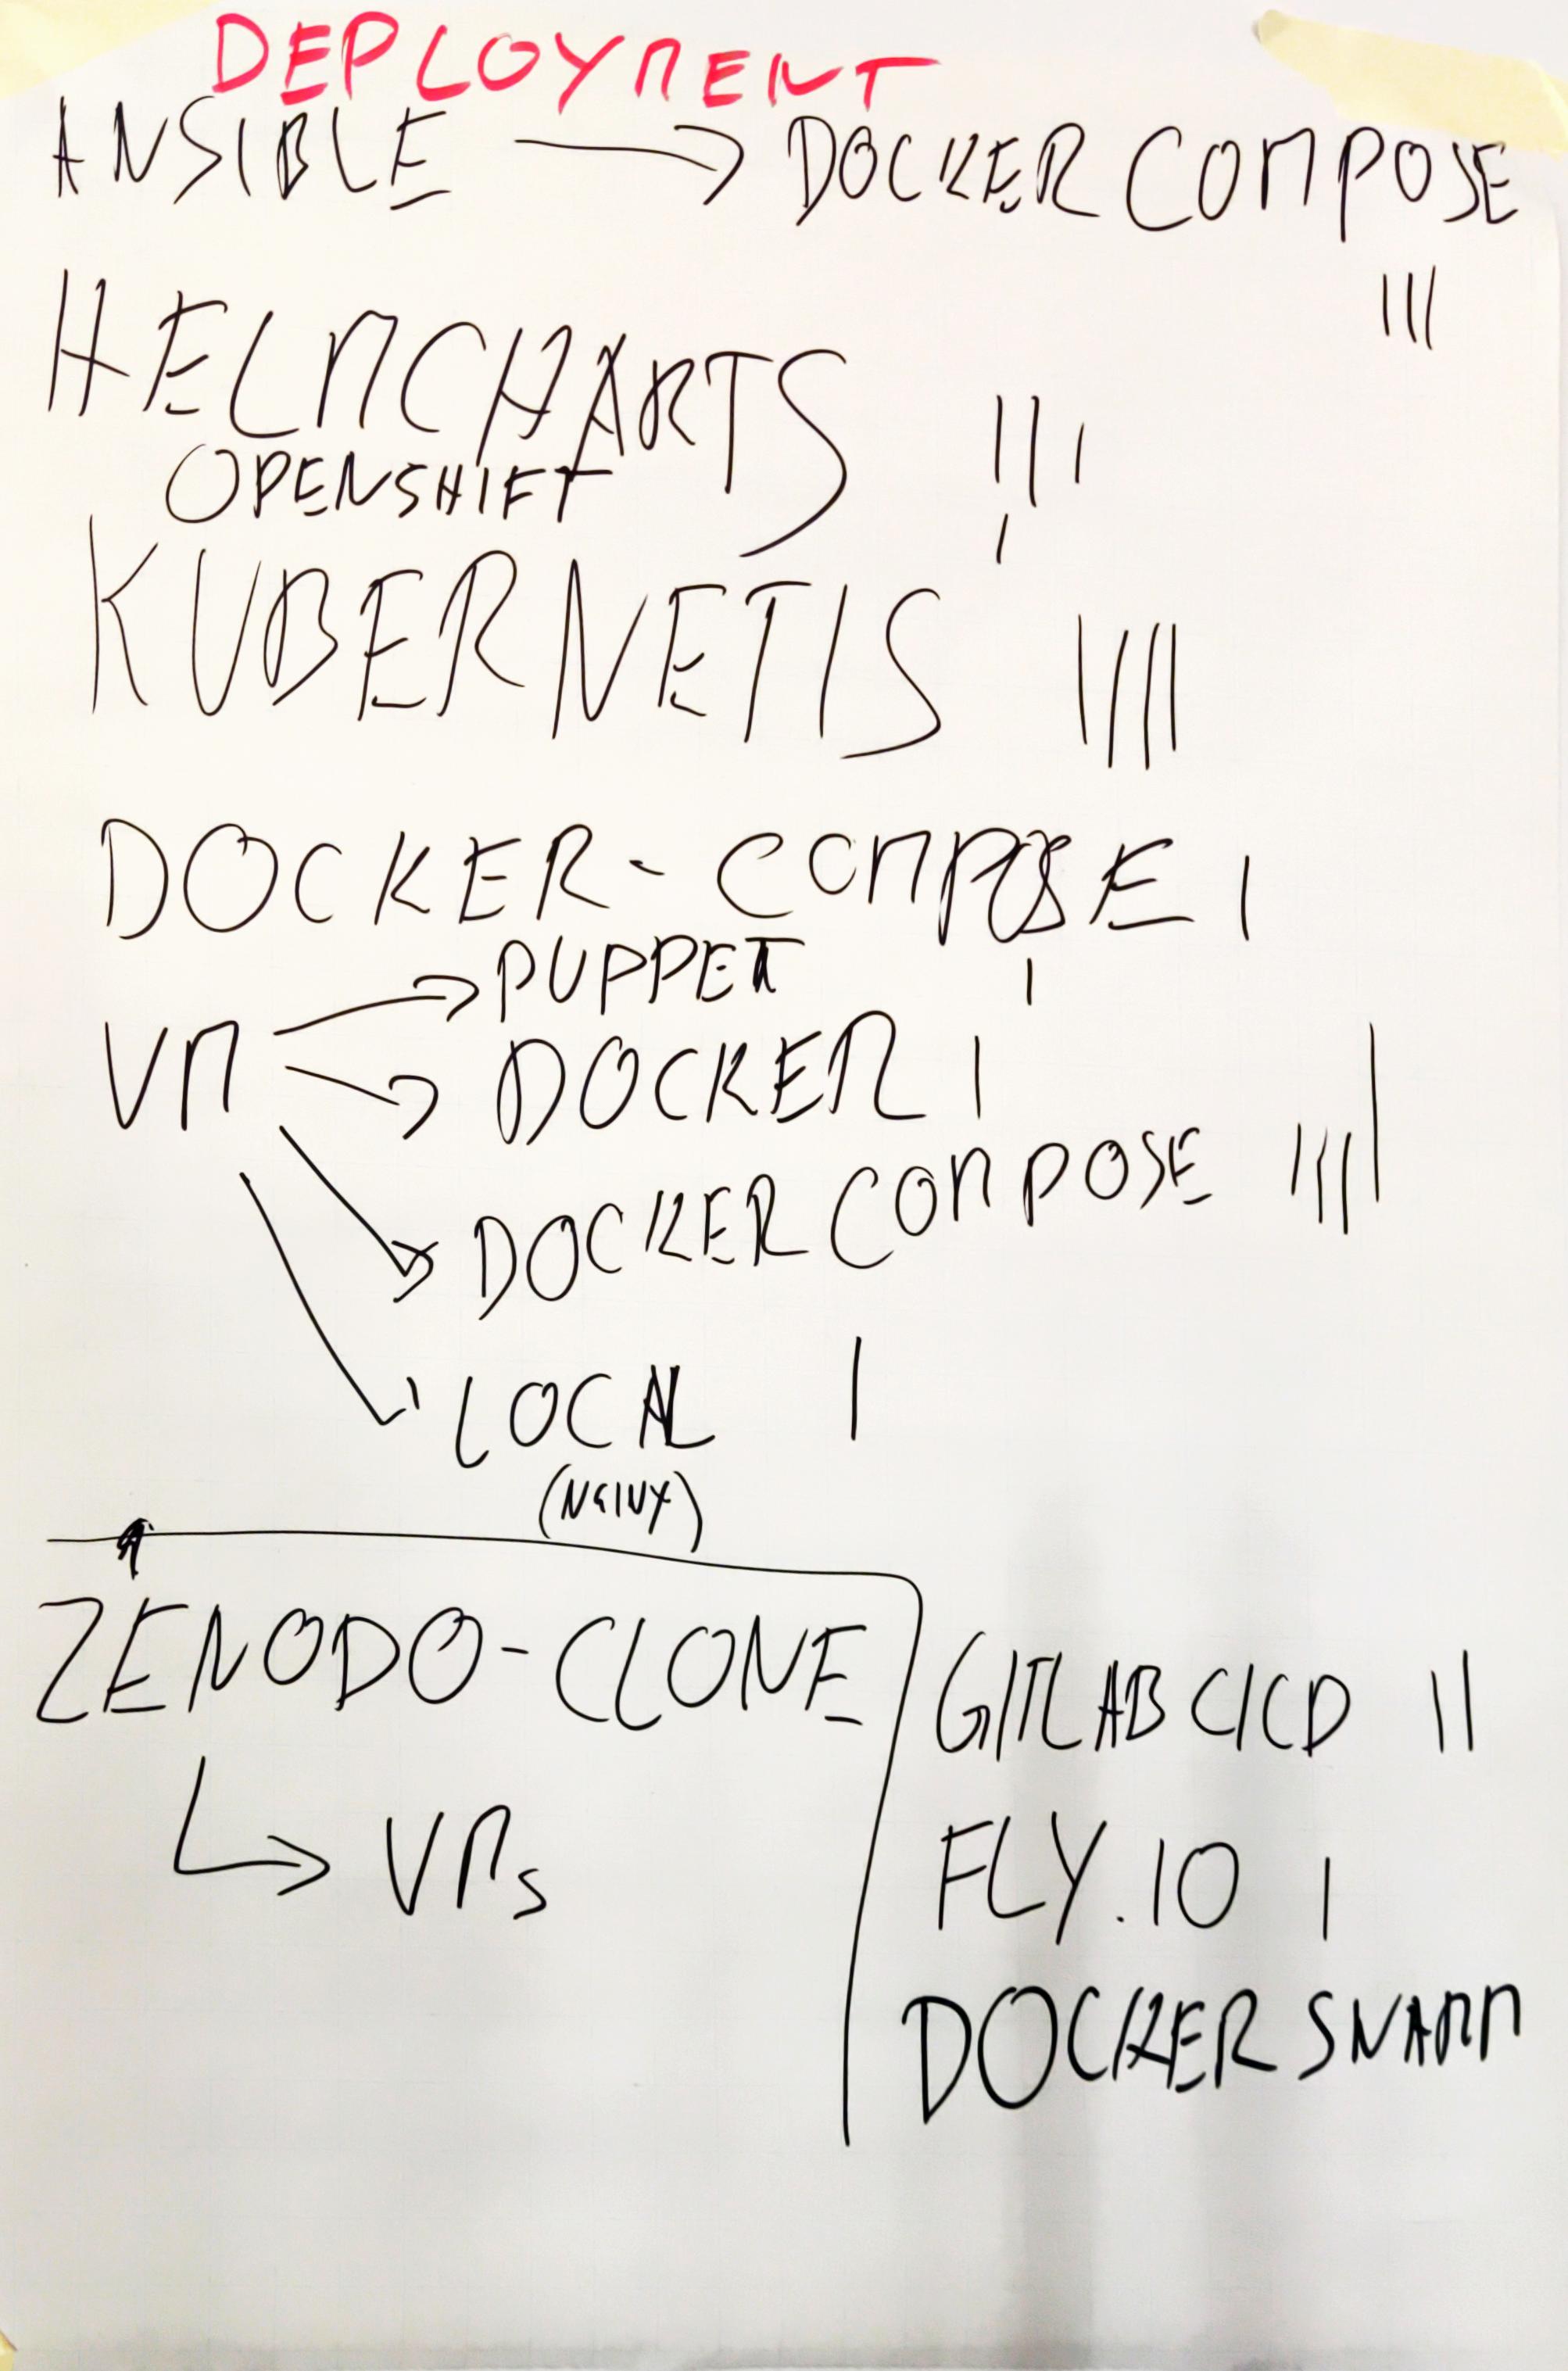 DEPLOYMENT
ANSIBLE → DOCKER COMPOSE
III
HELMCHARTS III
OPENSHIFT I
KUBERNETIS IIII
DOCKER-COMPOSE I
PUPPET I
VM → DOCKER I
DOCKER COMPOSE IIII
LOCAL I
(NGINX)
ZENODO-CLONE
↳ VMs
GITLAB CICD II
FLY.IO I
DOCKER SWARM